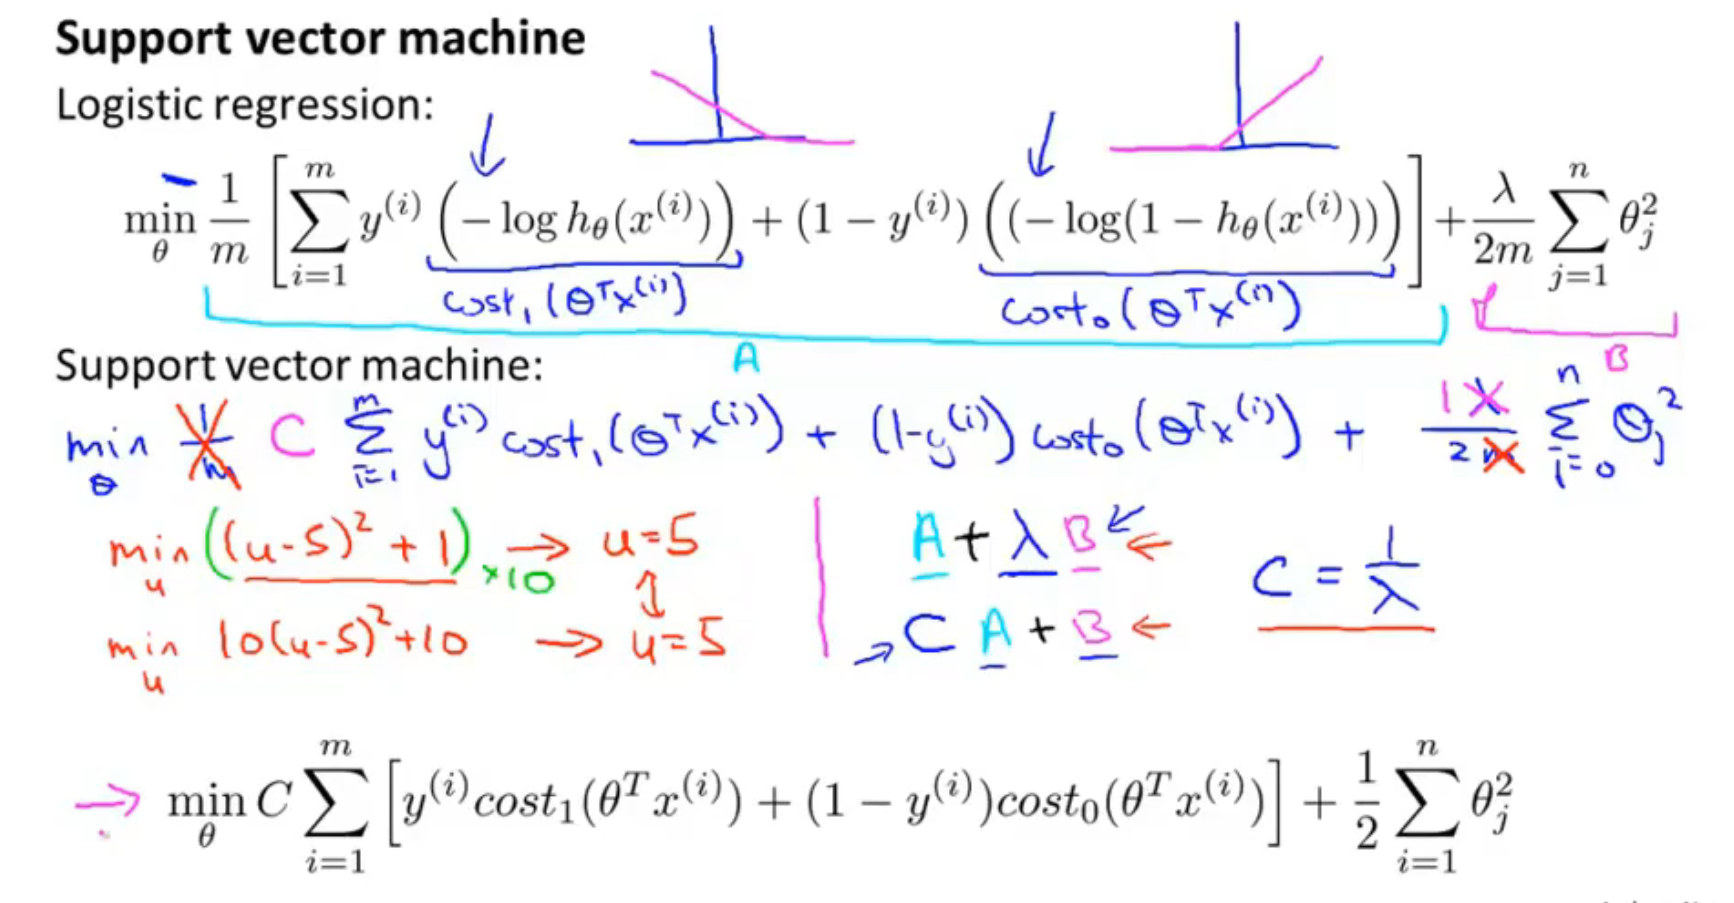 Support vector machine
Logistic regression:
min_θ 1/m [ ∑_{i=1}^{m} y^{(i)} ( − log h_θ(x^{(i)}) ) + (1 − y^{(i)}) ( (− log(1 − h_θ(x^{(i)}))) ) ] + λ/2m ∑_{j=1}^{n} θ_j^2
cost₁ (θ^T x^{(i)}) cost₀ (θ^T x^{(i)})
A B
Support vector machine:
min_θ 1/m C ∑_{i=1}^{m} y^{(i)} cost₁ (θ^T x^{(i)}) + (1-y^{(i)}) cost₀ (θ^T x^{(i)}) + 1 λ/2m ∑_{i=0}^{n} θ_j^2
min_u ((u-5)^2 + 1) ×10 → u=5
A + λ B ←
C = 1/λ
min_u 10(u-5)^2 + 10 → u=5
→ C A + B ←
→ min_θ C ∑_{i=1}^{m} [ y^{(i)} cost₁(θ^T x^{(i)}) + (1 − y^{(i)}) cost₀(θ^T x^{(i)}) ] + 1/2 ∑_{i=1}^{n} θ_j^2